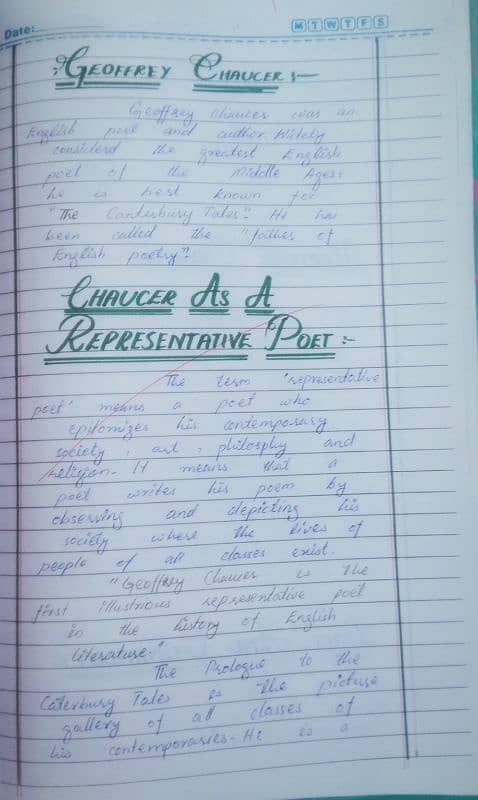 Date:
M T W T F S
:GEOFFREY CHAUCER :-
Geoffrey Chaucer was an
English poet and author. Widely
considerd the greatest English
poet of the Middle Ages.
he is best known for
"The Canterbury Tales". He has
been called the "father of
English poetry".
CHAUCER AS A
REPRESENTATIVE POET :-
The term 'representative
poet' means a poet who
epitomizes his contemporary
society, art, philosphy and
religion. It means that a
poet writes his poem by
observing and depicting his
society where the lives of
people of all classes exist.
"Geoffrey Chaucer is the
first illustrious representative poet
in the history of English
literature."
The Prologue to the
Caterbury Tales is the picture
gallery of all classes of
his contemporaries. He is a